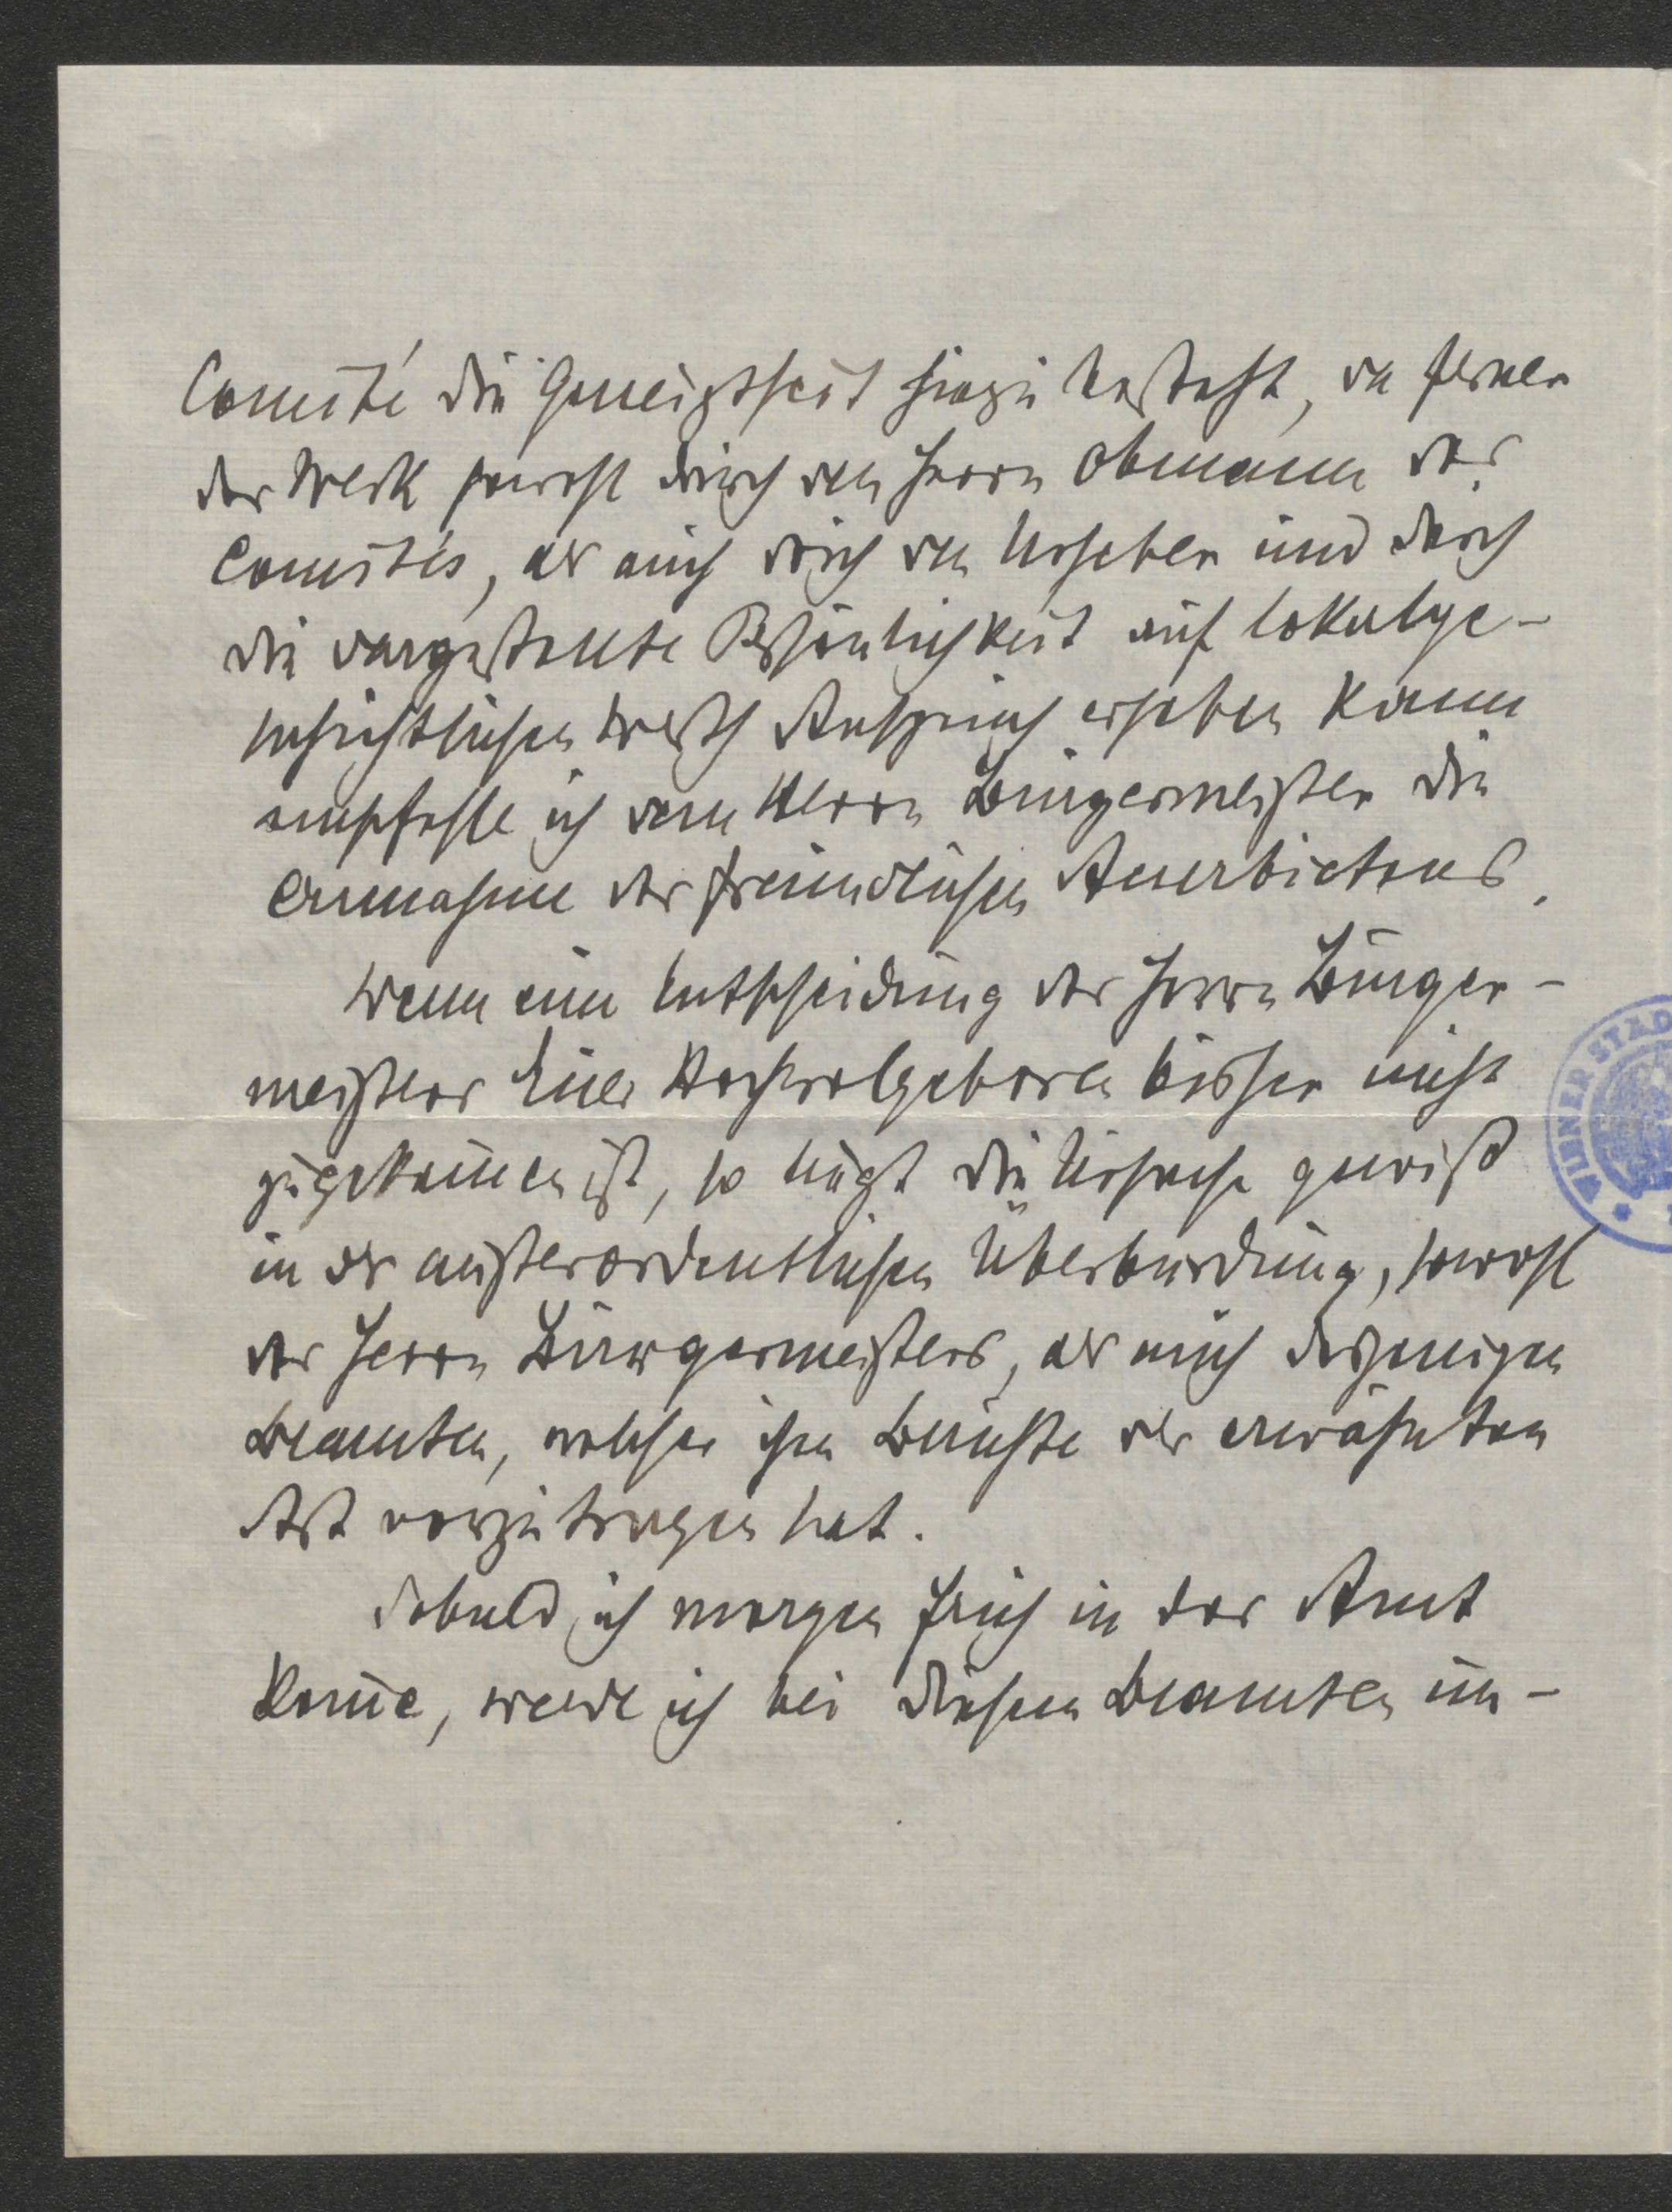 Comité die Geneigtheit hiezu besteht, da ferner
das Werk sowohl durch den Herrn Obmann des
Comités, als auch durch den Urheber und durch
die dargestellte Persönlichkeit auf lokalge-
schichtlichen Werth Anspruch erheben kann
empfehle ich dem Herrn Bürgermeister die
Annahme des freundlichen Anerbietens.
Wenn eine Entscheidung des Herrn Bürger-
meisters Euer Hochwolgeboren bisher nicht
zugekom̅en ist, so liegt die Ursache gewiß
in der außerordentlichen Überbürdung, sowohl
des Herrn Bürgermeisters, als auch desjenigen
Beamten, welcher ihm Berichte der erwähnten
Art vorzutragen hat.
Sobald ich morgen früh in das Amt
kom̅e, werde ich bei diesem Beamten um-
WIENER STAD